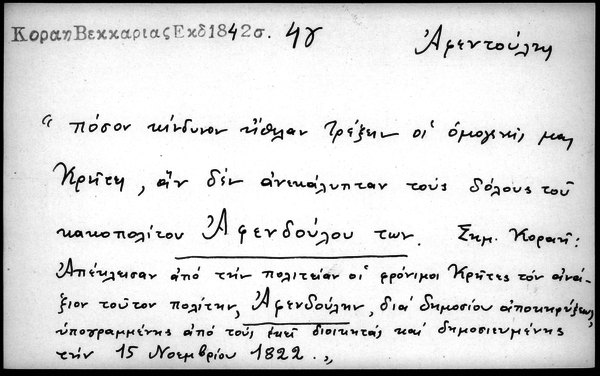 Κοραη Βεκκαριας Εκδ 1842 σ. 4γ Ἀφεντούλης
“ πόσον κίνδυνον ἤθελαν τρέξειν οἱ ὁμογενεῖς μας
Κρῆτες, ἂν δὲν ἀνεκάλυπταν τοὺς δόλους τοῦ
κακοπολίτου Ἀφενδούλου των. Σημ. Κοραῆ:
Ἀπέκλεισαν ἀπὸ τὴν πολιτείαν οἱ φρόνιμοι Κρῆτες τὸν ἀνά-
ξιον τοῦτον πολίτην, Ἀφενδούλην, διὰ δημοσίου ἀποκηρύξεως,
ὑπογραμμένης ἀπὸ τοὺς ἐκεῖ διοικητάς, καὶ δημοσιευμένης
τὴν 15 Νοεμβρίου 1822. „